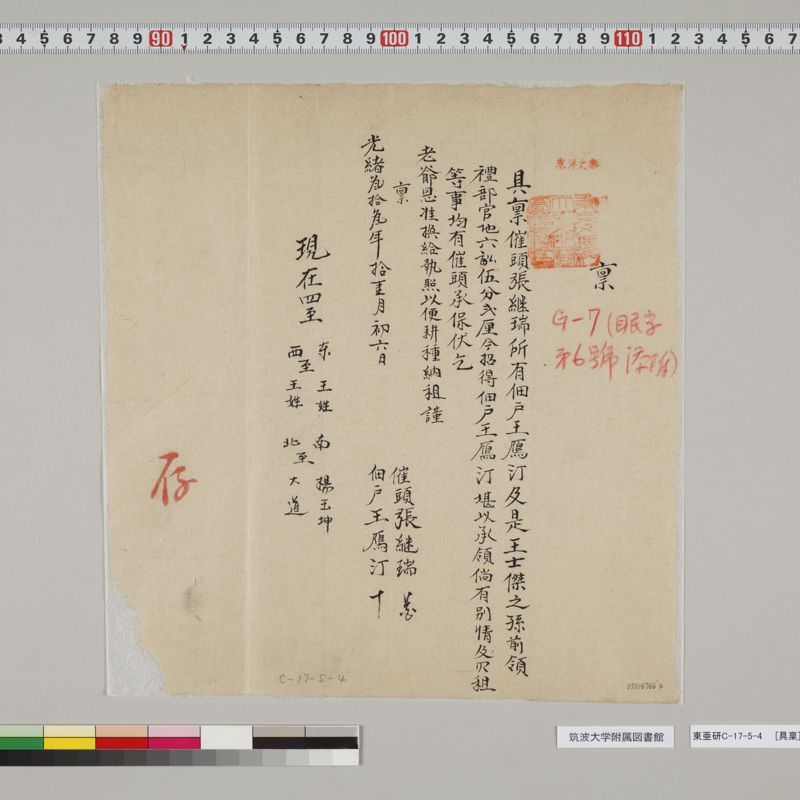 稟
具稟催頭張継瑞所有佃户王鴈汀及是王士傑之孫前領
禮部官地六畝伍分弍厘今招得佃户王鴈汀堪以承領倘有別情及欠租
等事均有催頭承保伏乞
老爺恩准換給執照以便耕種納租謹
稟
光緒年拾月初六日
催頭張継瑞
佃户王鴈汀十
現在四至
东王姓 南 楊玉坤
西至王姓 北至大道
存
G-7
C-17-5-4
筑波大学附属図書館
東亜研C-17-5-4 [具稟]
3 4 5 6 7 8 9 90 1 2 3 4 5 6 7 8 9 100 1 2 3 4 5 6 7 8 9 110 1 2 3 4 5 6 7